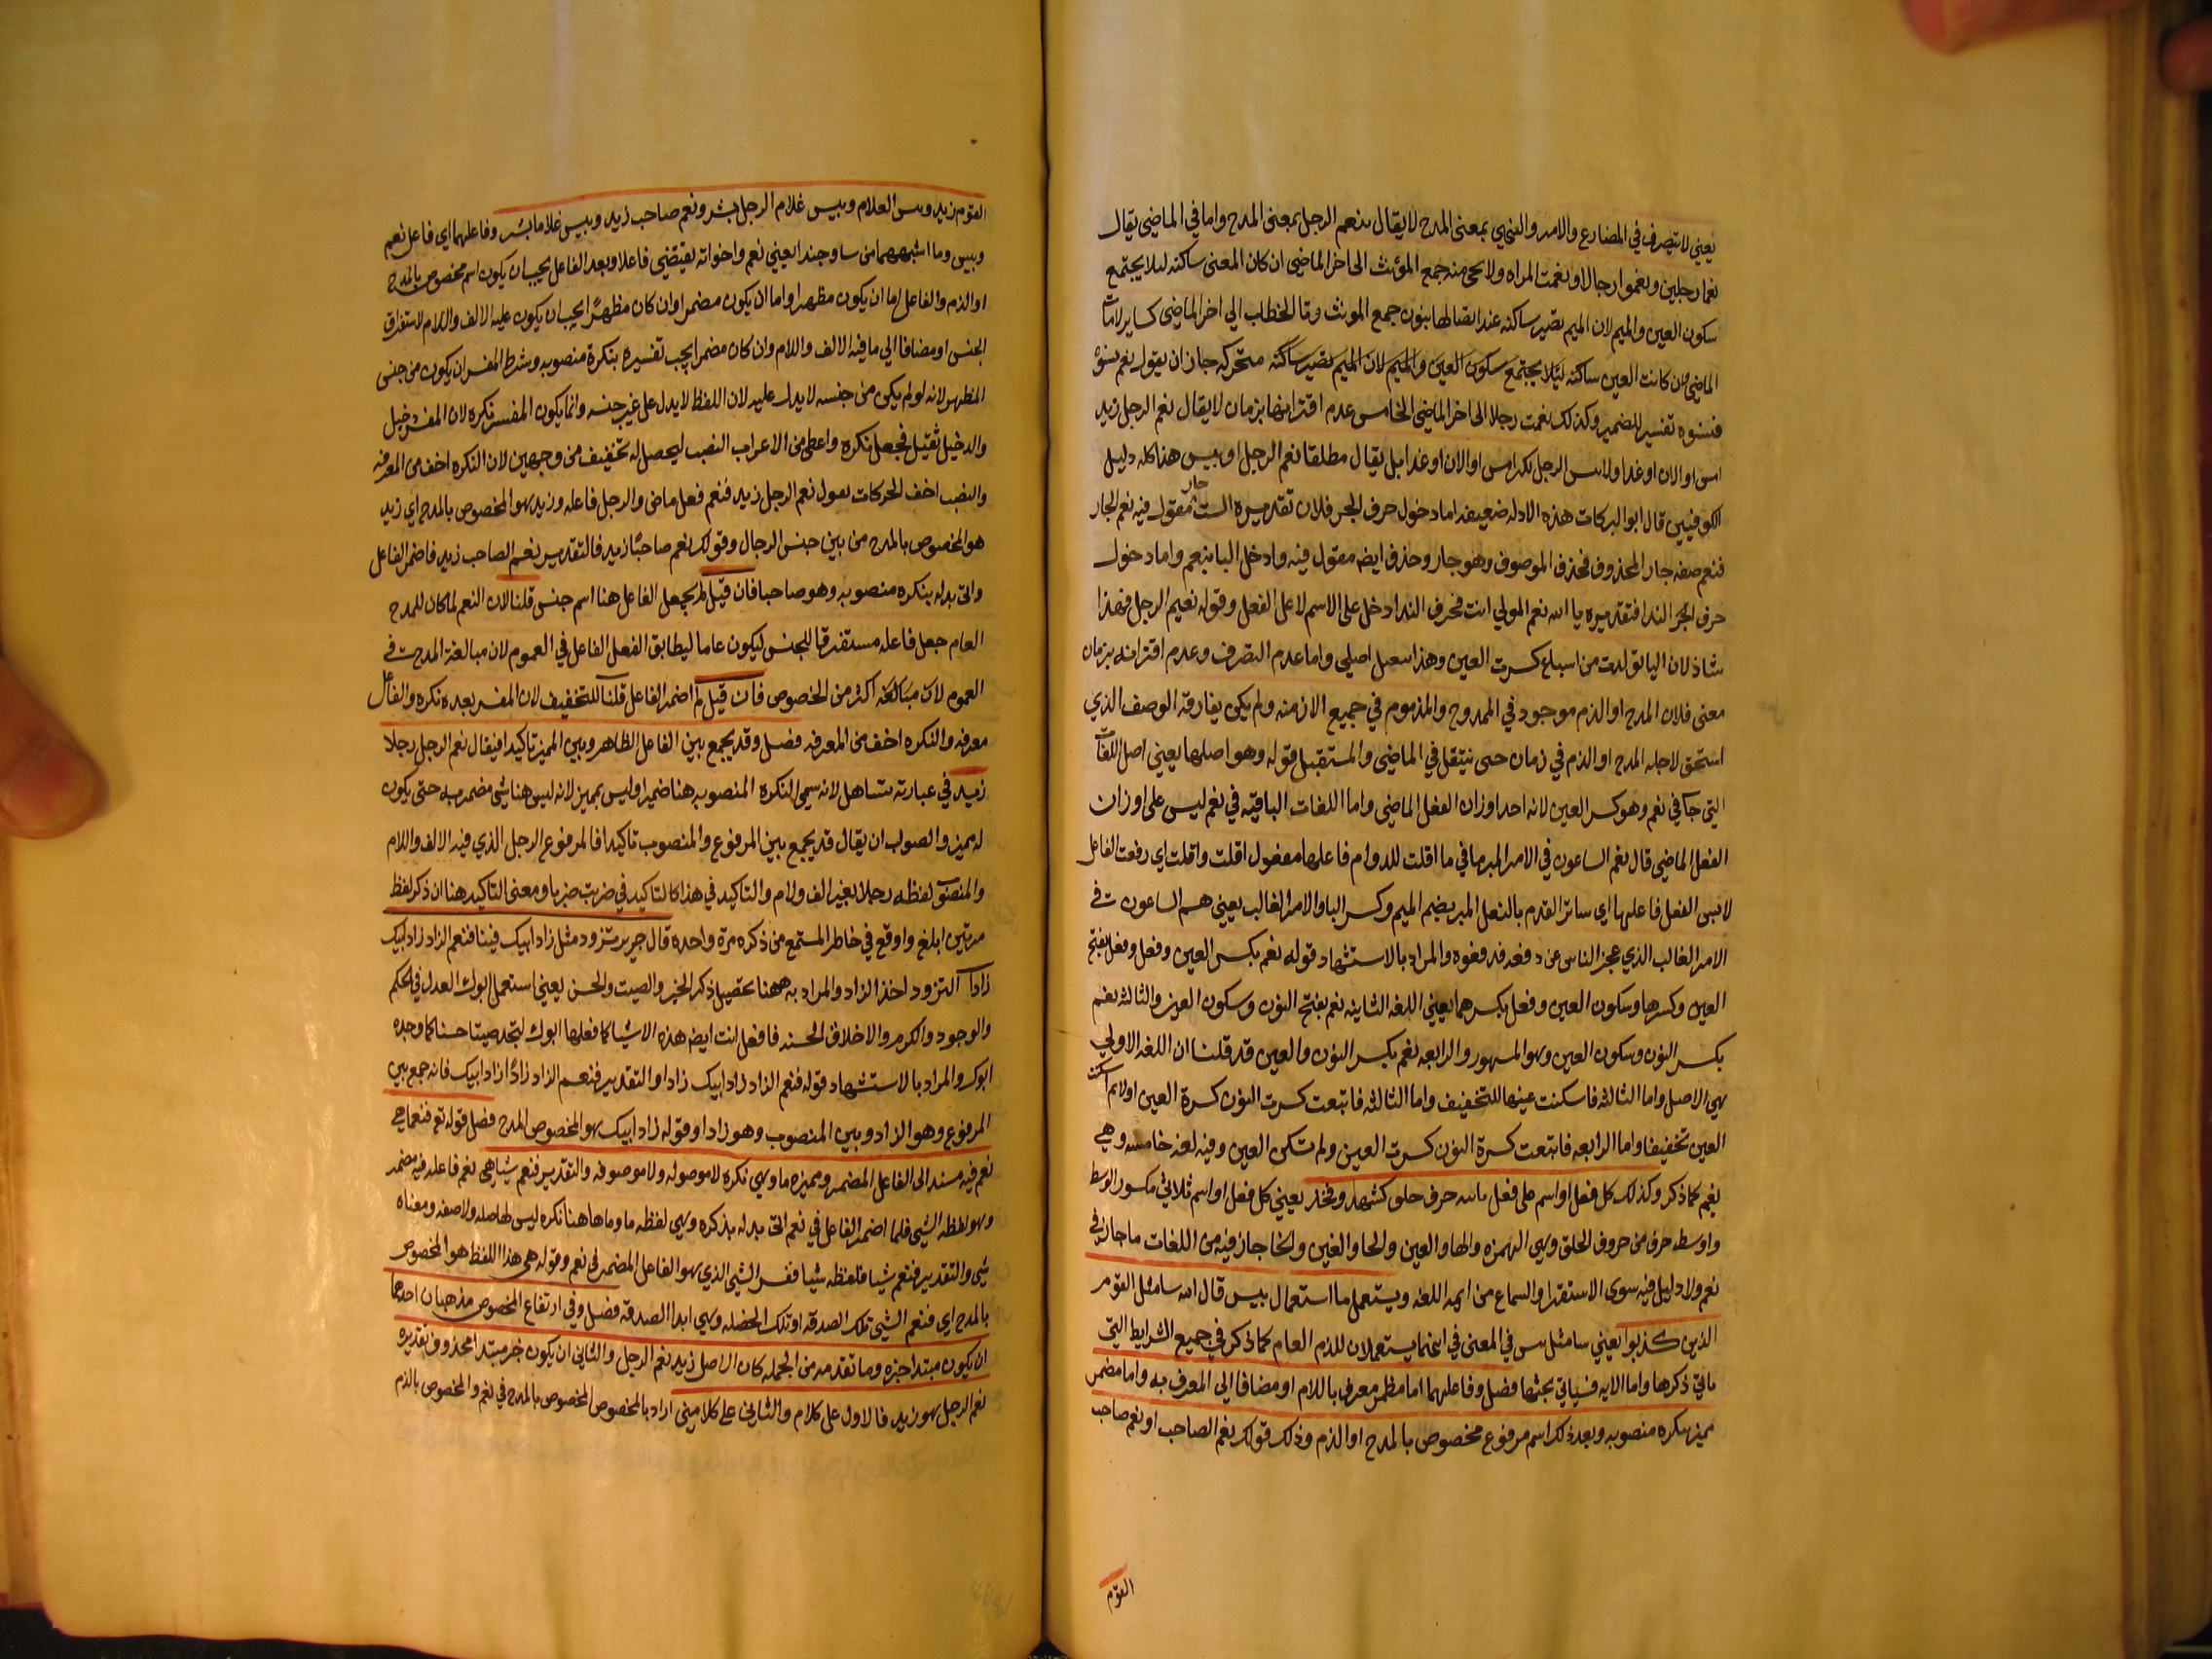 يعني لا يتصرف في المضارع والامر والنهي بمعنى المدح لا يقال ينعم الرجل بمعنى المدح واما في الماضي يقال
نعما رجلين ونعموا رجالا او نعمت المراه ولا يجي منه جمع المؤنث الى اخر الماضي ان كان المعنى ساكنه ليلا يجتمع
سكون العين والميم لان الميم تصير ساكنه عند اتصالها بنون جمع المونث وتا الخطاب الي اخر الماضي كساير لامات
الماضي وان كانت العين ساكنه ليلا يجتمع سكون العين والميم لان الميم تصير ساكنه متحركه جاز ان يقول نعم نسوة
فنسوه تفسير للضمير وكذلك نعمت رجلا الى اخر الماضي الخامس عدم اقترانها بزمان لا يقال نعم الرجل زيد
امس او الان او غدا ولا بيس الرجل بكر امس او الان او غدا بل يقال مطلقا نعم الرجل او بيس هذا كله دليل
الكوفيين قال ابو البركات هذه الادله ضعيفه اما دخول حرف الجر فلان تقديره الست بجار مقول فيه نعم الجار
فنعم صفه جار المحذوف فحذف الموصوف وهو جار وحذف ايضه مقول فيه وادخل البا بنعم واما دخول
حرف الجر الندا فتقديره يا الله نعم المولي انت فحرف الندا دخل على الاسم لا على الفعل وقوله نعيم الرجل فهذا
شاذ لان اليا تولدت من اسباع كسرت العين وهذا ليس اصلي واما عدم التصرف وعدم اقترانه بزمان
معنى فلان المدح او الذم موجود في الممدوح والمذموم في جميع الازمنه ولم يكن يفارقه الوصف الذي
استحق لاجله المدح او الذم في زمان حتى ينتقل في الماضي والمستقبل قوله وهو اصلها يعني اصل اللغات
التي جا في نعم وهو كسر العين لانه احد اوزان الفعل الماضي واما اللغات الباقيه في نعم ليس على اوزان
الفعل الماضي قال نعم الساعون في الامر المبر ما في ما اقلت للدوام فاعلها مفعول اقلت واقلت اي رفعت الفاعل
الفعل فاعلها اي ساتر القدم بالنعل المبر بضم الميم وكسر البا والامر الغالب يعني هم الساعون في
الامر الغالب الذي عجز الناس عن دفعه والمراد بالاستشهاد قوله نعم بكسر العين وفعل وفعل بفتح
العين وكسرها وسكون العين وفعل بكسرهما يعني اللغه الثانيه نعم بفتح النون وسكون العين والثالثه نعم
بكسر النون وسكون العين وهو المسهور والرابعه نعم بكسر النون والعين قد قلنا ان اللغه الاولي
هي الاصل واما الثالثه فاسكنت عينها للتخفيف واما الثالثه فاتبعت كسرت النون كسرة العين اولا ثم اسكنت
العين تخفيفا واما الرابعه فاتبعت كسرة النون كسرت العين ولم تكن العين وفيه لغه خامسه وهي
نغيم كما ذكر وكذلك كل فعل او اسم على فعل ثانيه حرف حلق كشهد وفخذ يعني كل فعل او اسم ثلاثي مكسور الوسط
واوسطه حرف من حروف الحلق وهي الهمزه والها والعين والحا والغين والخا جاز فيه من اللغات ما جاز في
نعم ولا دليل فيه سوى الاستقرا والسماع من ايمه اللغه ويستعمل ما استعمال بيس قال الله سا مثل القوم
الذين كذبوا يعني سا مثل بيس في المعنى في انهما يستعملان للذم العام كما ذكر في جميع الشرايط التي
ياتي ذكرها واما الايه فسياتي بحثها فصل وفاعلهما اما مظهر معرف باللام او مضافا الي المعرف به واما مضمر
مميز بنكره منصوبه وبعد ذلك اسم مرفوع مخصوص بالمدح او الذم وذلك قولك نعم الصاحب او نعم صاحب
القوم
القوم زيد وبيس الغلام وبيس غلام الرجل بشر ونعم صاحب زيد وبيس غلاما بشر وفاعلهما اي فاعل نعم
وبيس وما اشبههما من سا وحبذا يعني نعم واخواته يقتضي فاعلا وبعد الفاعل يجيب ان يكون اسم مخصوص بالمدح
او الذم والفاعل اما ان يكون مظهرا واما ان يكون مضمرا وان كان مظهرًا يجب ان يكون عليه الالف واللام لاستغراق
الجنس او مضافا الي ما فيه الالف واللام وان كان مضمرا يجب تفسيره بنكرة منصوبه وشرط المفسر ان يكون من جنس
المظهر لانه لو لم يكن من جنسه لا يدل عليه لان اللفظ لا يدل على غير جنسه وانما يكون المفسر نكره لان المفسر دخيل
والدخيل ثقيل فجعل نكره واعطى من الاعراب النصب ليحصل له تخفيف من وجهين لان النكره اخف من المعرفه
والنصب اخف الحركات تقول نعم الرجل زيد فنعم فعل ماضي والرجل فاعله وزيد هو المخصوص بالمدح اي زيد
هو المخصوص بالمدح من بين جنس الرجال وقولك نعم صاحبًا زيد فالتقدير نعم الصاحب زيد فاضمر الفاعل
واتى بدله بنكره منصوبه وهو صاحبا فان قيل لم يجعل الفاعل هنا اسم جنس قلنا لان النعم لما كان للمدح
العام جعل فاعله مستغرقا للجنس ليكون عاما ليطابق الفعل الفاعل في العموم لان مبالغة المدح في
العموم لان مبالغته اكثر من الخصوص فان قيل لم اضمر الفاعل قلنا للتخفيف لان المفسر بعده نكره والفاعل
معرفه والنكره اخف من المعرفه فصل وقد يجمع بين الفاعل الظاهر وبين المميز تاكيدا فيقال نعم الرجل رجلا
زيد في عبارته تساهل لانه سمى النكره المنصوبه هنا ضميرا وليس بمميز لانه ليس هنا شي مضمر مبه حتى يكون
له مميز والصوب ان يقال قد يجمع بين المرفوع والمنصوب تاكيدا فالمرفوع الرجل الذي فيه الالف واللام
والمنصوب لفظه رجلا بغير الف ولام والتاكيد في هذا كالتاكيد في ضربت ضربا ومعنى التاكيد هنا ان ذكر لفظ
مرتين ابلغ واوقع في خاطر المستمع من ذكره مرة واحده قال جرير تزود مثل زاد ابيك فينا فنعم الزاد زاد ابيك
زادا التزود اخذ الزاد والمراد به ههنا تحصيل ذكر الخير والصيت والحسن يعني استعمل ابوك العدل في الحكم
والوجود والكرم والاخلاق الحسنه فافعل انت ايضه هذه الاشيا كما فعلها ابوك لتجد صيتا حسنا كما وجده
ابوك والمراد بالاستشهاد قوله فنعم الزاد زاد ابيك زادا والتقدير فنعم الزاد زادًا زاد ابيك فانه جمع بين
المرفوع وهو الزاد وبين المنصوب وهو زادا وقوله زاد ابيك هو المخصوص المدح فصل قوله تع فنعما هي
نعم فيه مسند الى الفاعل المضمر ومميزه ما وهي نكره لا موصوله ولا موصوفه والتقدير فنعم شيا هي نعم فاعله فيه مضمر
وهو لفظه الشي فلما اضمر الفاعل في نعم اتى بدله بذكره وهي لفظه ما وما هاهنا نكره ليس لها صله ولا صفه ومعناه
شي والتقدير فنعم شيا فلفظه شيا فسر الشي الذي هو الفاعل المضمر في نعم وقوله هي هذا اللفظ هو المخصوص
بالمدح اي فنعم الشي تلك الصدقه او تلك الخصله وهي ابدا الصدقه فصل وفي ارتفاع المخصوص مذهبان احدهما
ان يكون مبتدا خبره وما تقدمه من الجمله كان الاصل زيد نعم الرجل والثاني ان يكون خبر مبتدا محذوف تقديره
نعم الرجل هو زيد فالاول على كلام والثاني على كلامين اراد بالمخصوص المخصوص بالمدح في نعم والمخصوص بالذم